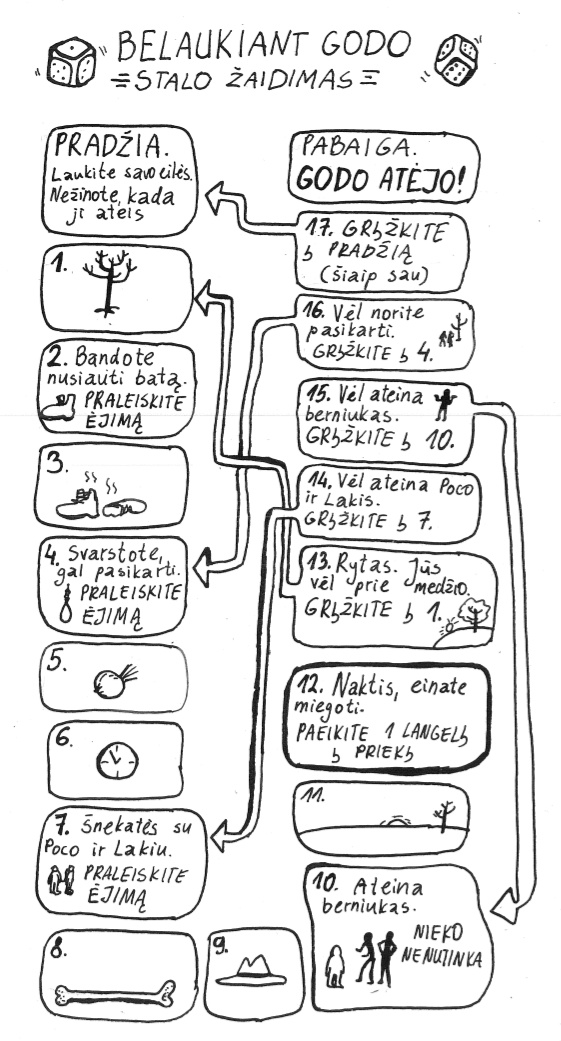 BELAUKIANT GODO
STALO ŽAIDIMAS
PRADŽIA.
Laukite savo eilės.
Nežinote, kada
ji ateis
1.
2. Bandote
nusiauti batą.
PRALEISKITE
ĖJIMĄ
3.
4. Svarstote,
gal pasikarti.
PRALEISKITE
ĖJIMĄ
5.
6.
7. Šnekatės su
Poco ir Lakiu.
PRALEISKITE
ĖJIMĄ
8.
9.
10. Ateina
berniukas.
NIEKO
NENUTINKA
11.
12. Naktis, einate
miegoti.
PAEIKITE 1 LANGELĮ
Į PRIEKĮ
13. Rytas. Jūs
vėl prie medžio.
GRĮŽKITE Į 1.
14. Vėl ateina Poco
ir Lakis.
GRĮŽKITE Į 7.
15. Vėl ateina
berniukas.
GRĮŽKITE Į 10.
16. Vėl norite
pasikarti.
GRĮŽKITE Į 4.
17. GRĮŽKITE
Į PRADŽIĄ
(šiaip sau)
PABAIGA.
GODO ATĖJO!